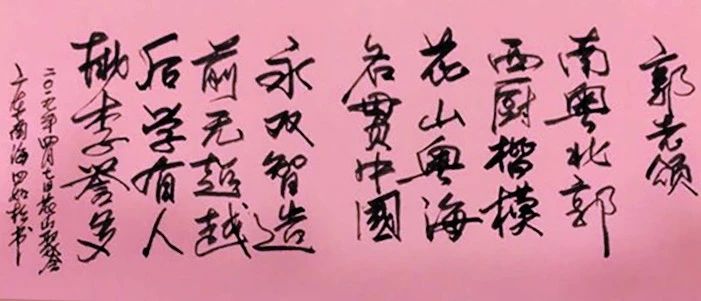 郭老颂
南粤北郭
西厨楷模
花山粤海
名贯中國
永双智造
前无超越
后学有人
桃李誉多
二〇一九年四月七日花山聚会
南海书